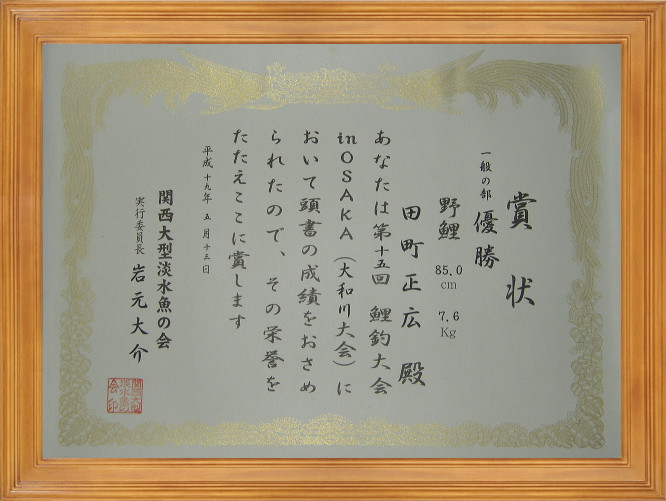 賞状
一般の部 優勝
野鯉 85.0cm 7.6Kg
田町正広 殿
あなたは第十五回 鯉釣大会
inOSAKA（大和川大会）に
おいて頭書の成績をおさめ
られたので、その栄誉を
たたえここに賞します
平成十九年 五月十三日
関西大型淡水魚の会
実行委員長 岩元大介
関西大型
淡水魚の
会印